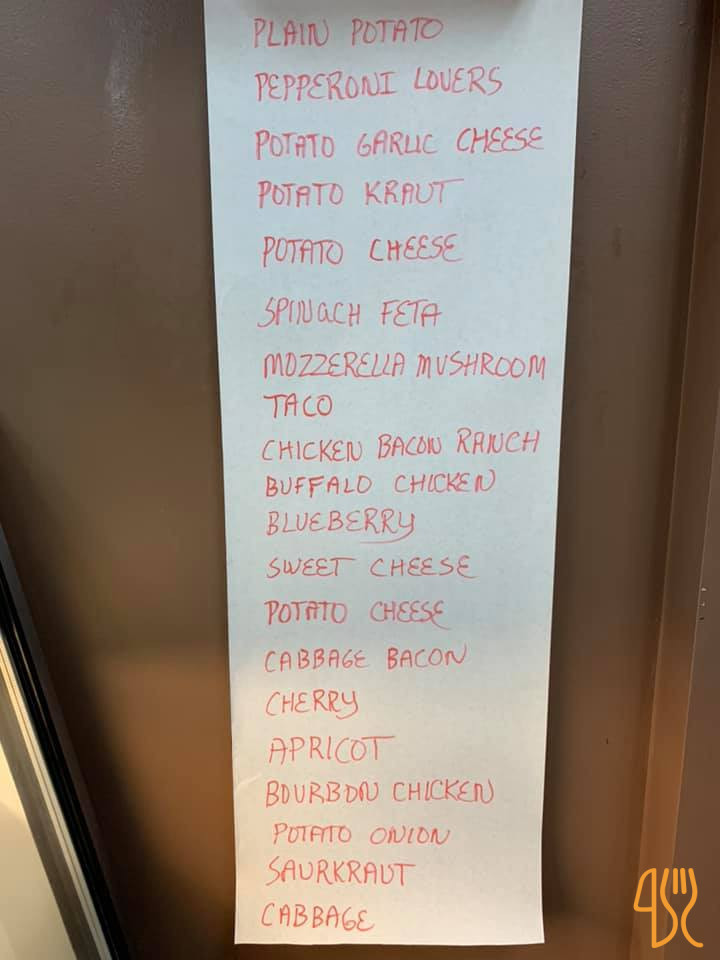 PLAIN POTATO
PEPPERONI LOVERS
POTATO GARLIC CHEESE
POTATO KRAUT
POTATO CHEESE
SPINACH FETA
MOZZERELLA MUSHROOM
TACO
CHICKEN BACON RANCH
BUFFALO CHICKEN
BLUEBERRY
SWEET CHEESE
POTATO CHEESE
CABBAGE BACON
CHERRY
APRICOT
BOURBON CHICKEN
POTATO ONION
SAURKRAUT
CABBAGE